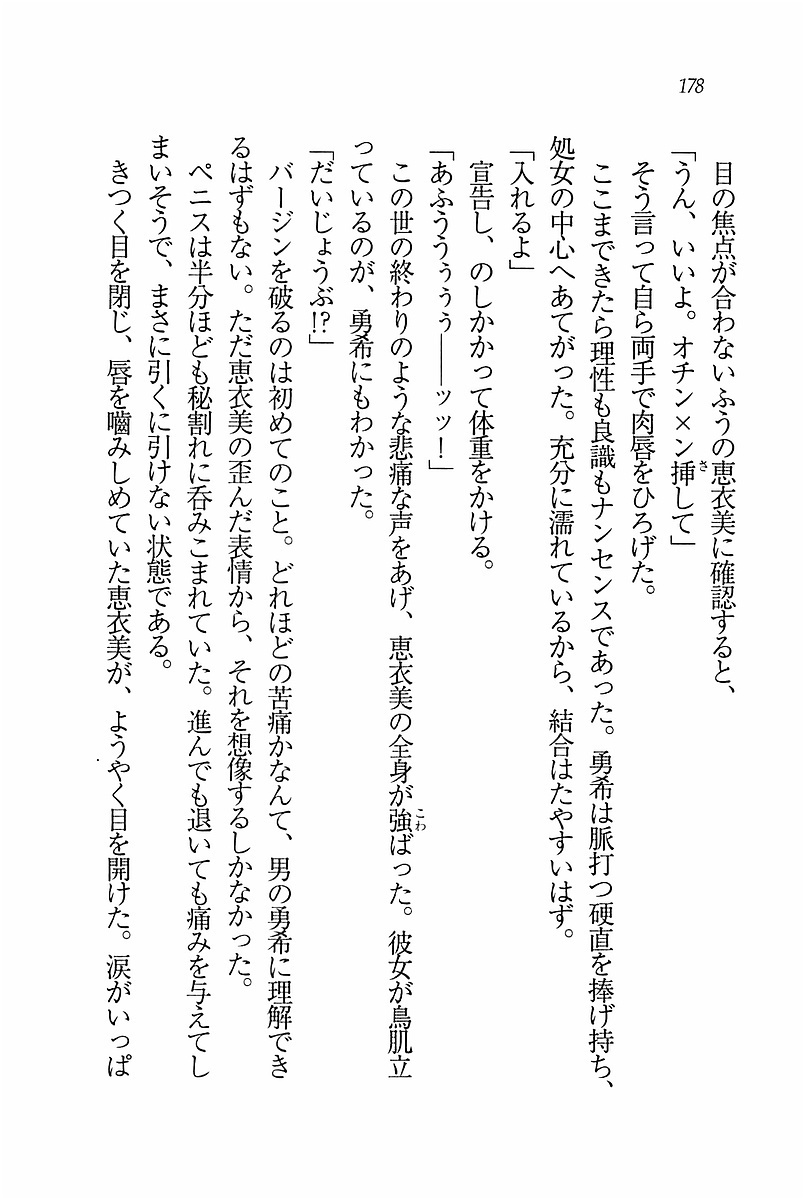 178
目の焦点が合わないふうの恵衣美に確認すると、
「うん、いいよ。オチン×ン挿して」
そう言って自ら両手で肉唇をひろげた。
ここまできたら理性も良識もナンセンスであった。勇希は脈打つ硬直を捧げ持ち、
処女の中心へあてがった。充分に濡れているから、結合はたやすいはず。
「入れるよ」
宣告し、のしかかって体重をかける。
「あふうううぅぅ――ッッ！」
この世の終わりのような悲痛な声をあげ、恵衣美の全身が強ばった。彼女が鳥肌立
っているのが、勇希にもわかった。
「だいじょうぶ!?」
バージンを破るのは初めてのこと。どれほどの苦痛かなんて、男の勇希に理解でき
るはずもない。ただ恵衣美の歪んだ表情から、それを想像するしかなかった。
ペニスは半分ほども秘割れに呑みこまれていた。進んでも退いても痛みを与えてし
まいそうで、まさに引くに引けない状態である。
きつく目を閉じ、唇を噛みしめていた恵衣美が、ようやく目を開けた。涙がいっぱ